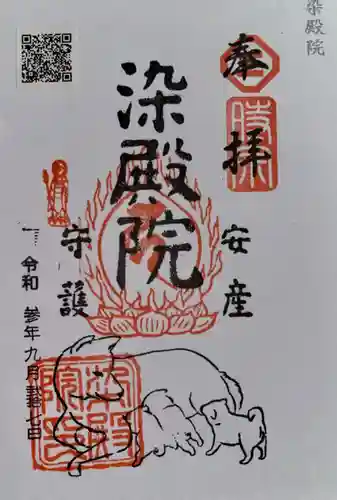 染殿院
奉拝
染殿院
安産
守護
令和 参年九月弐拾七日